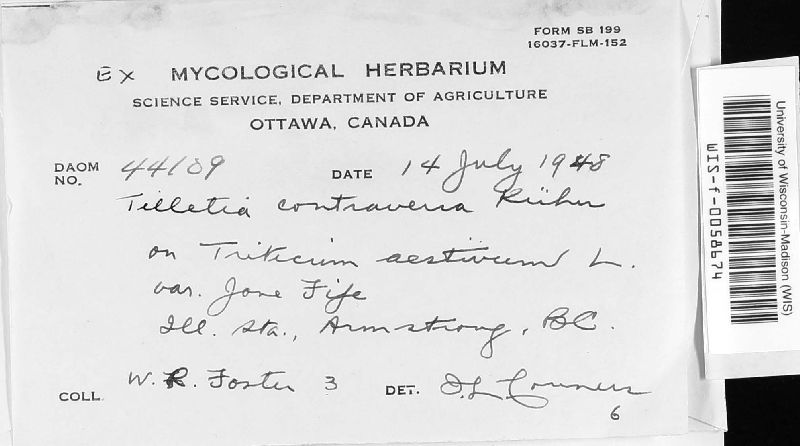 FORM SB 199
16037-FLM-152
Ex MYCOLOGICAL HERBARIUM
SCIENCE SERVICE, DEPARTMENT OF AGRICULTURE
OTTAWA, CANADA
DAOM NO. 44109 DATE 14 July 1948
Tilletia contraversa Kühn
on Triticum aestivum L.
var. Jone Fife
Ill. Sta., Armstrong, BC.
COLL. W. R. Foster 3 DET. I.L. Conners
6
University of Wisconsin-Madison (WIS)
WIS-f-0058674